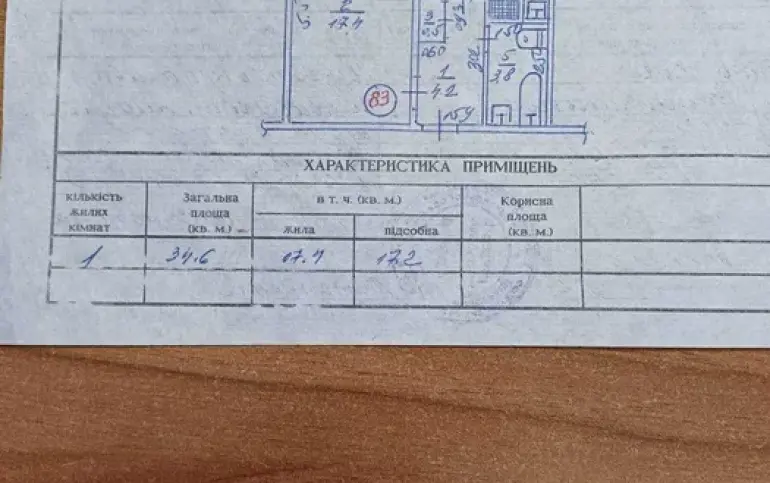 2
17.4
3
0.5
060
1
4.2
302
150
5
3.8
250
83
159
ХАРАКТЕРИСТИКА ПРИМІЩЕНЬ
кількість жилих кімнат
Загальна площа (кв. м.)
в т. ч. (кв. м.)
жила
підсобна
Корисна площа (кв. м.)
1
34.6
17.4
17.2